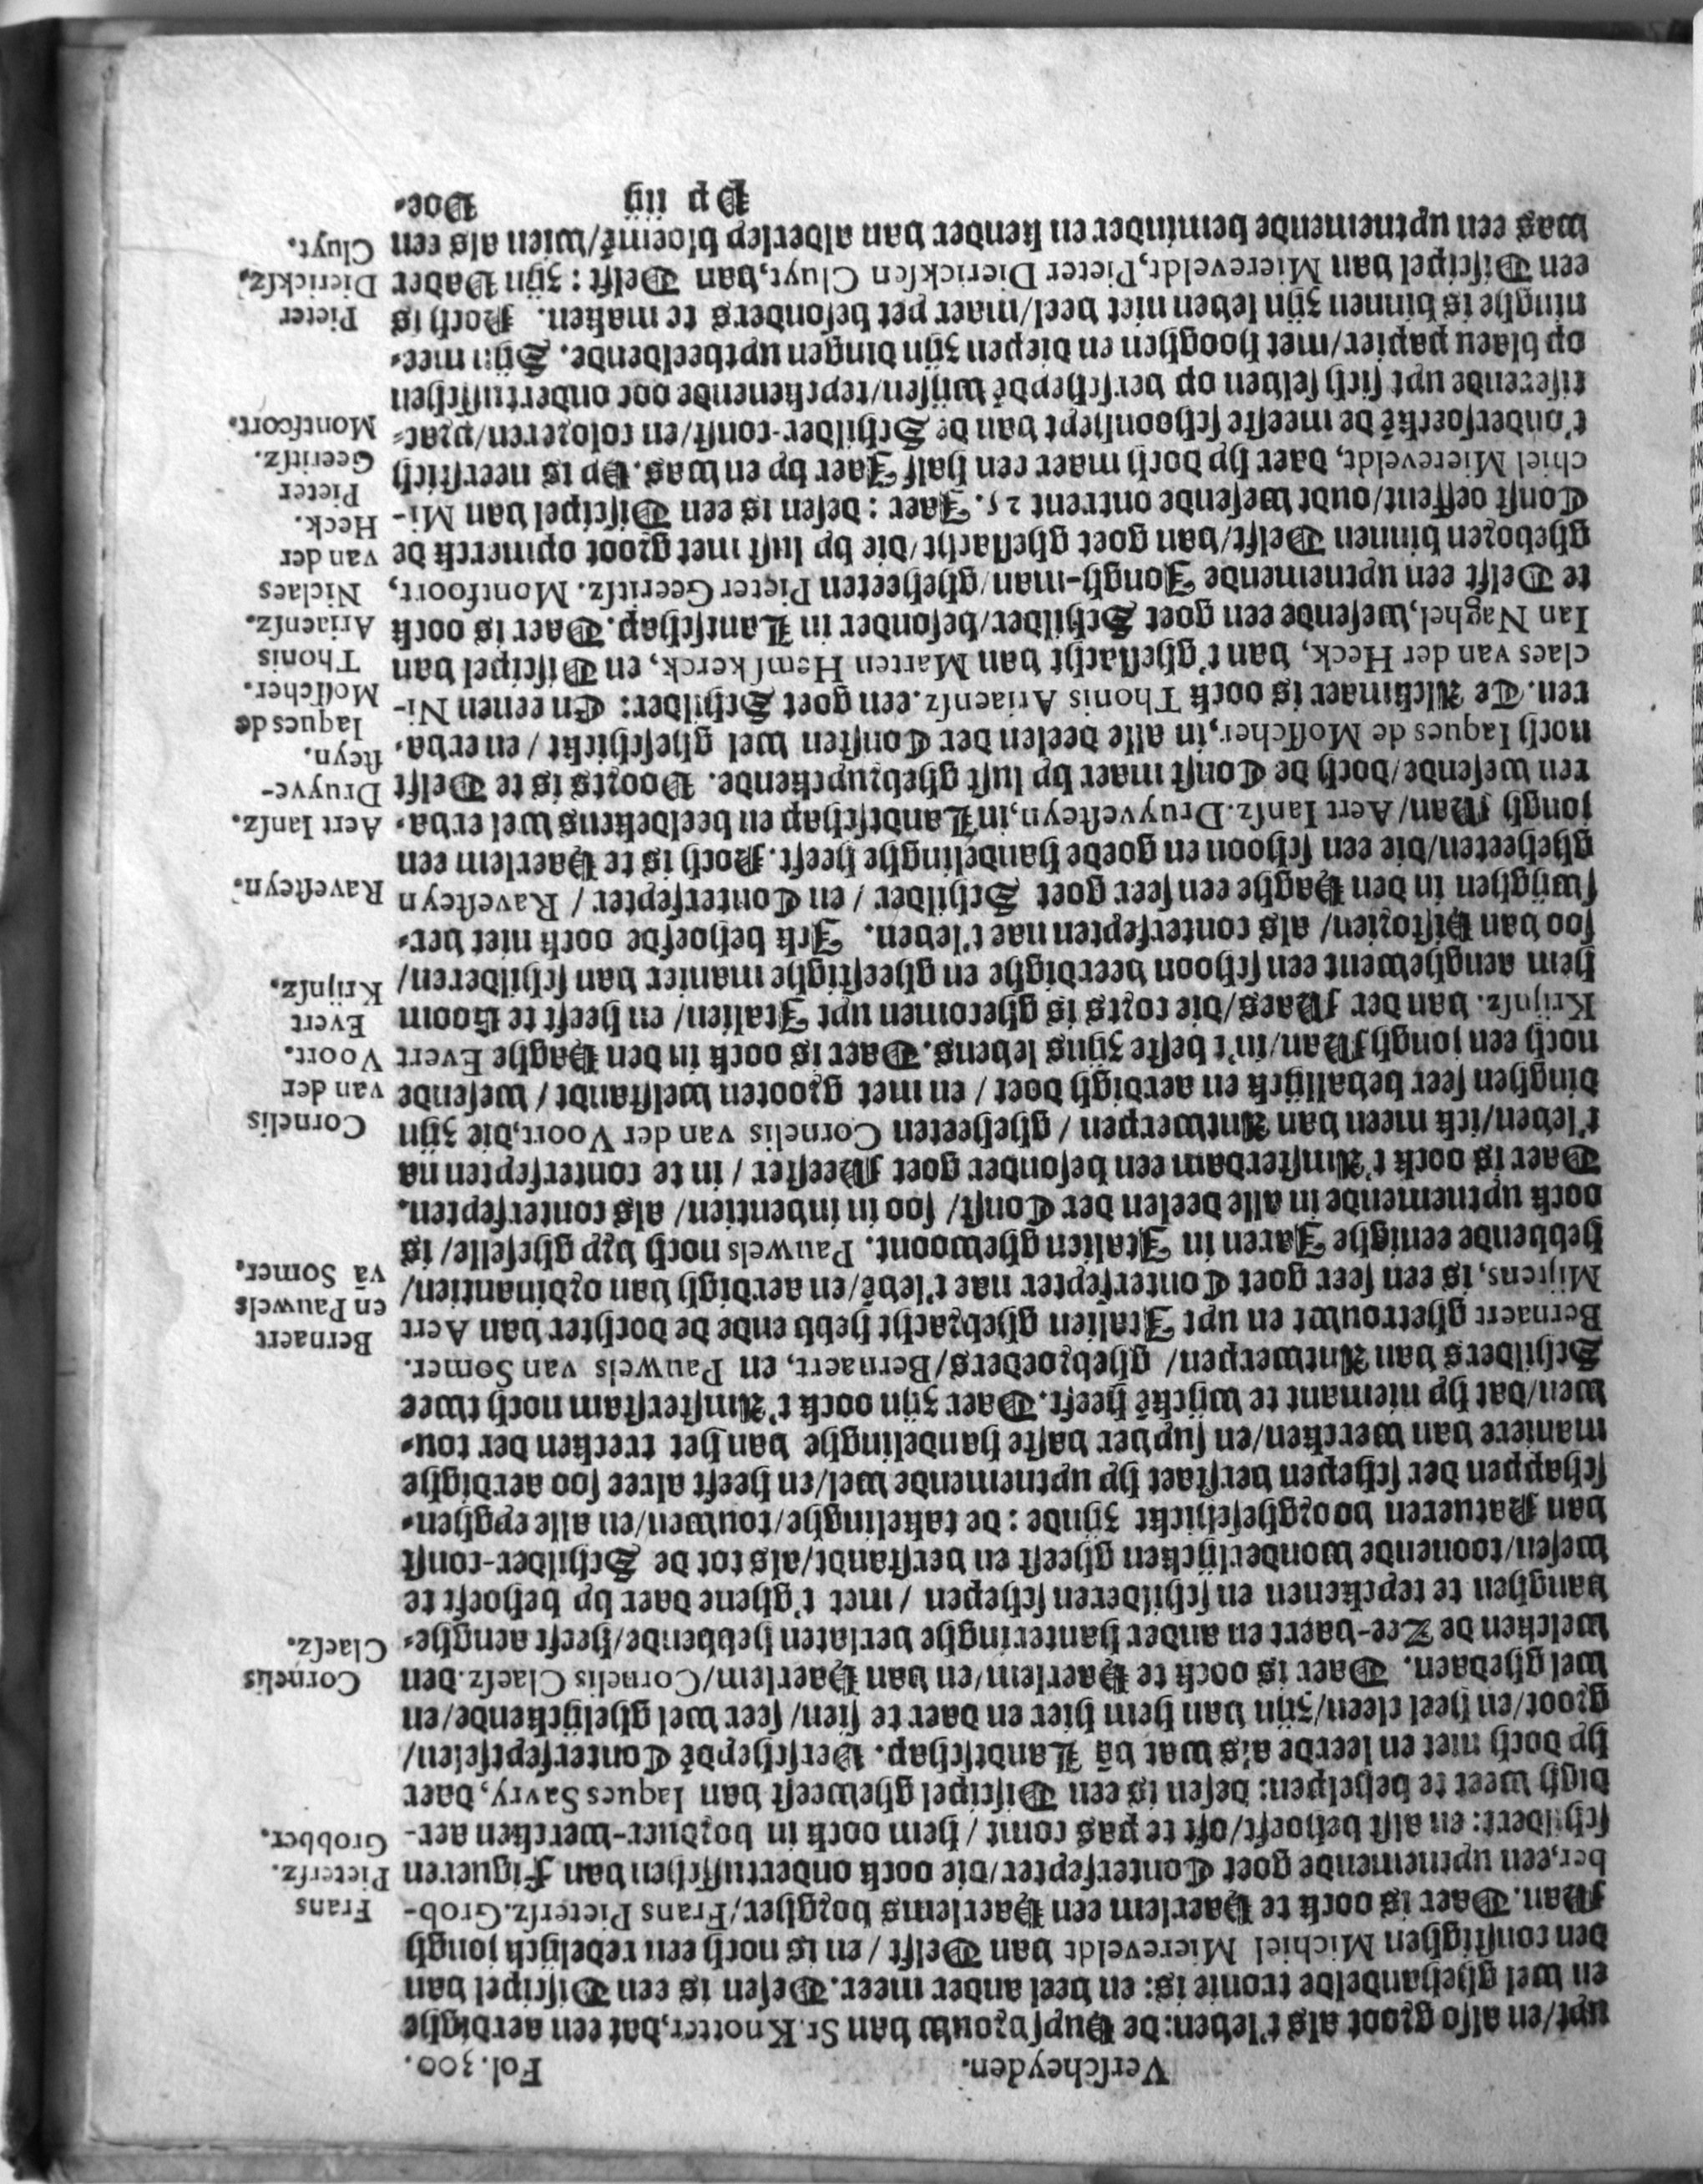 Verscheyden. Fol. 300.
uyt/en also groot als t'leven: de Huysvrouw van Sr. Knotter, dat een aerdighe
en wel ghehandelde tronie is: en veel ander meer. Desen is een Discipel van
den constighen Michiel Miereveldt van Delft / en is noch een redelijck jongh
Man. Daer is oock te Haerlem een Haerlems borgher/Frans Pietersz. Grob-
ber, een uytnemende goet Conterfeyter/die oock ondertusschen van Figueren
schildert: en alst behoeft/oft te pas comt / hem oock in borduer-wercken aer-
digh weet te behelpen: desen is een Discipel gheweest van Iaques Savry, daer
hy doch niet en leerde als wat vā Landtschap. Verscheydē Conterfeytselen/
groot/en heel cleen/zijn van hem hier en daer te sien/ seer wel ghelijckende/en
wel ghedaen. Daer is oock te Haerlem/en van Haerlem/Cornelis Claesz. den
welcken de Zee-vaert en ander hanteringhe verlaten hebbende/heeft aenghe-
vanghen te teyckenen en schilderen schepen / met t'ghene daer by behoeft te
wesen/toonende wonderlijcken gheest en verstandt/als tot de Schilder-const
van Natueren voorgheschickt zijnde: de takelinghe/touwen/en alle eyghen-
schappen der schepen verstaet hy uytnemende wel/en heeft alree soo aerdighe
maniere van wercken/en suyver vaste handelinghe van het trecken der tou-
wen/dat hy niemant te wijckē heeft. Daer zijn oock t'Amsterstam noch twee
Schilders van Antwerpen/ ghebroeders/Bernaert, en Pauwels van Somer.
Bernaert ghetrouwt en uyt Italien ghebracht hebbende de dochter van Aert
Mijtens, is een seer goet Conterfeyter nae t'levē/en aerdigh van ordinantien/
hebbende eenighe Jaren in Italien ghewoont. Pauwels noch vry gheselle/ is
oock uytnemende in alle deelen der Const/ soo in inventien/ als conterfeyten.
Daer is oock t'Amsterdam een besonder goet Meester / in te conterfeyten na
t'leven/ick meen van Antwerpen / gheheeten Cornelis van der Voort, die zijn
dinghen seer bevallijck en aerdigh doet / en met grooten welstandt / wesende
noch een jongh Man/in't beste zijns levens. Daer is oock in den Haghe Evert
Krijnsz. van der Maes/die corts is ghecomen uyt Italien/ en heeft te Room
hem aenghewent een schoon veerdighe en gheestighe manier van schilderen/
soo van Historien/ als conterfeyten nae t'leven. Ick behoefde oock niet ver-
swijghen in den Haghe een seer goet Schilder / en Conterfeyter / Ravesteyn
gheheeten/die een schoon en goede handelinghe heeft. Noch is te Haerlem een
jongh Man/ Aert Iansz. Druyvesteyn, in Landtschap en beeldekens wel erva-
ren wesende/doch de Const maer by lust ghebruyckende. Voorts is te Delft
noch Iaques de Mosscher, in alle deelen der Consten wel gheschickt / en erva-
ren. Te Alckmaer is oock Thonis Ariaensz. een goet Schilder: En eenen Ni-
claes van der Heck, van t'gheslacht van Marten Hemskerck, en Discipel van
Ian Naghel, wesende een goet Schilder/besonder in Lantschap. Daer is oock
te Delft een uytnemende Jongh-man/gheheeten Pieter Geeritsz. Montfoort,
gheboren binnen Delft/van goet gheslacht/die by lust met groot opmerck de
Const oeffent/oudt wesende ontrent 25. Jaer : desen is een Discipel van Mi-
chiel Miereveldt, daer hy doch maer een half Jaer by en was. Hy is neerstich
t'ondersoeckē de meeste schoonheyt van de Schilder-const/en coloreren/prac-
tiserende uyt sich selven op verscheydē wijsen/teyckenende ooc ondertusschen
op blaeu papier/met hooghen en diepen zijn dingen uytbeeldende. Sijn mee-
ninghe is binnen zijn leven niet veel/maer yet besonders te maken. Noch is
een Discipel van Miereveldt, Pieter Diericksen Cluyt, van Delft: zijn Vader
was een uytnemende beminder en kender van alderley bloemē/wien als een
Pp iiij Doc-
Frans
Pietersz.
Grobber.
Cornelis
Claesz.
Bernaert
en Pauwels
vā Somer.
Cornelis
van der
Voort.
Evert
Krijnsz.
Ravesteyn.
Aert Iansz.
Druyve-
steyn.
Iaques de
Mosscher.
Thonis
Ariaensz.
Niclaes
van der
Heck.
Pieter
Geeritsz.
Montfoort.
Pieter
Diericksz.
Cluyt.